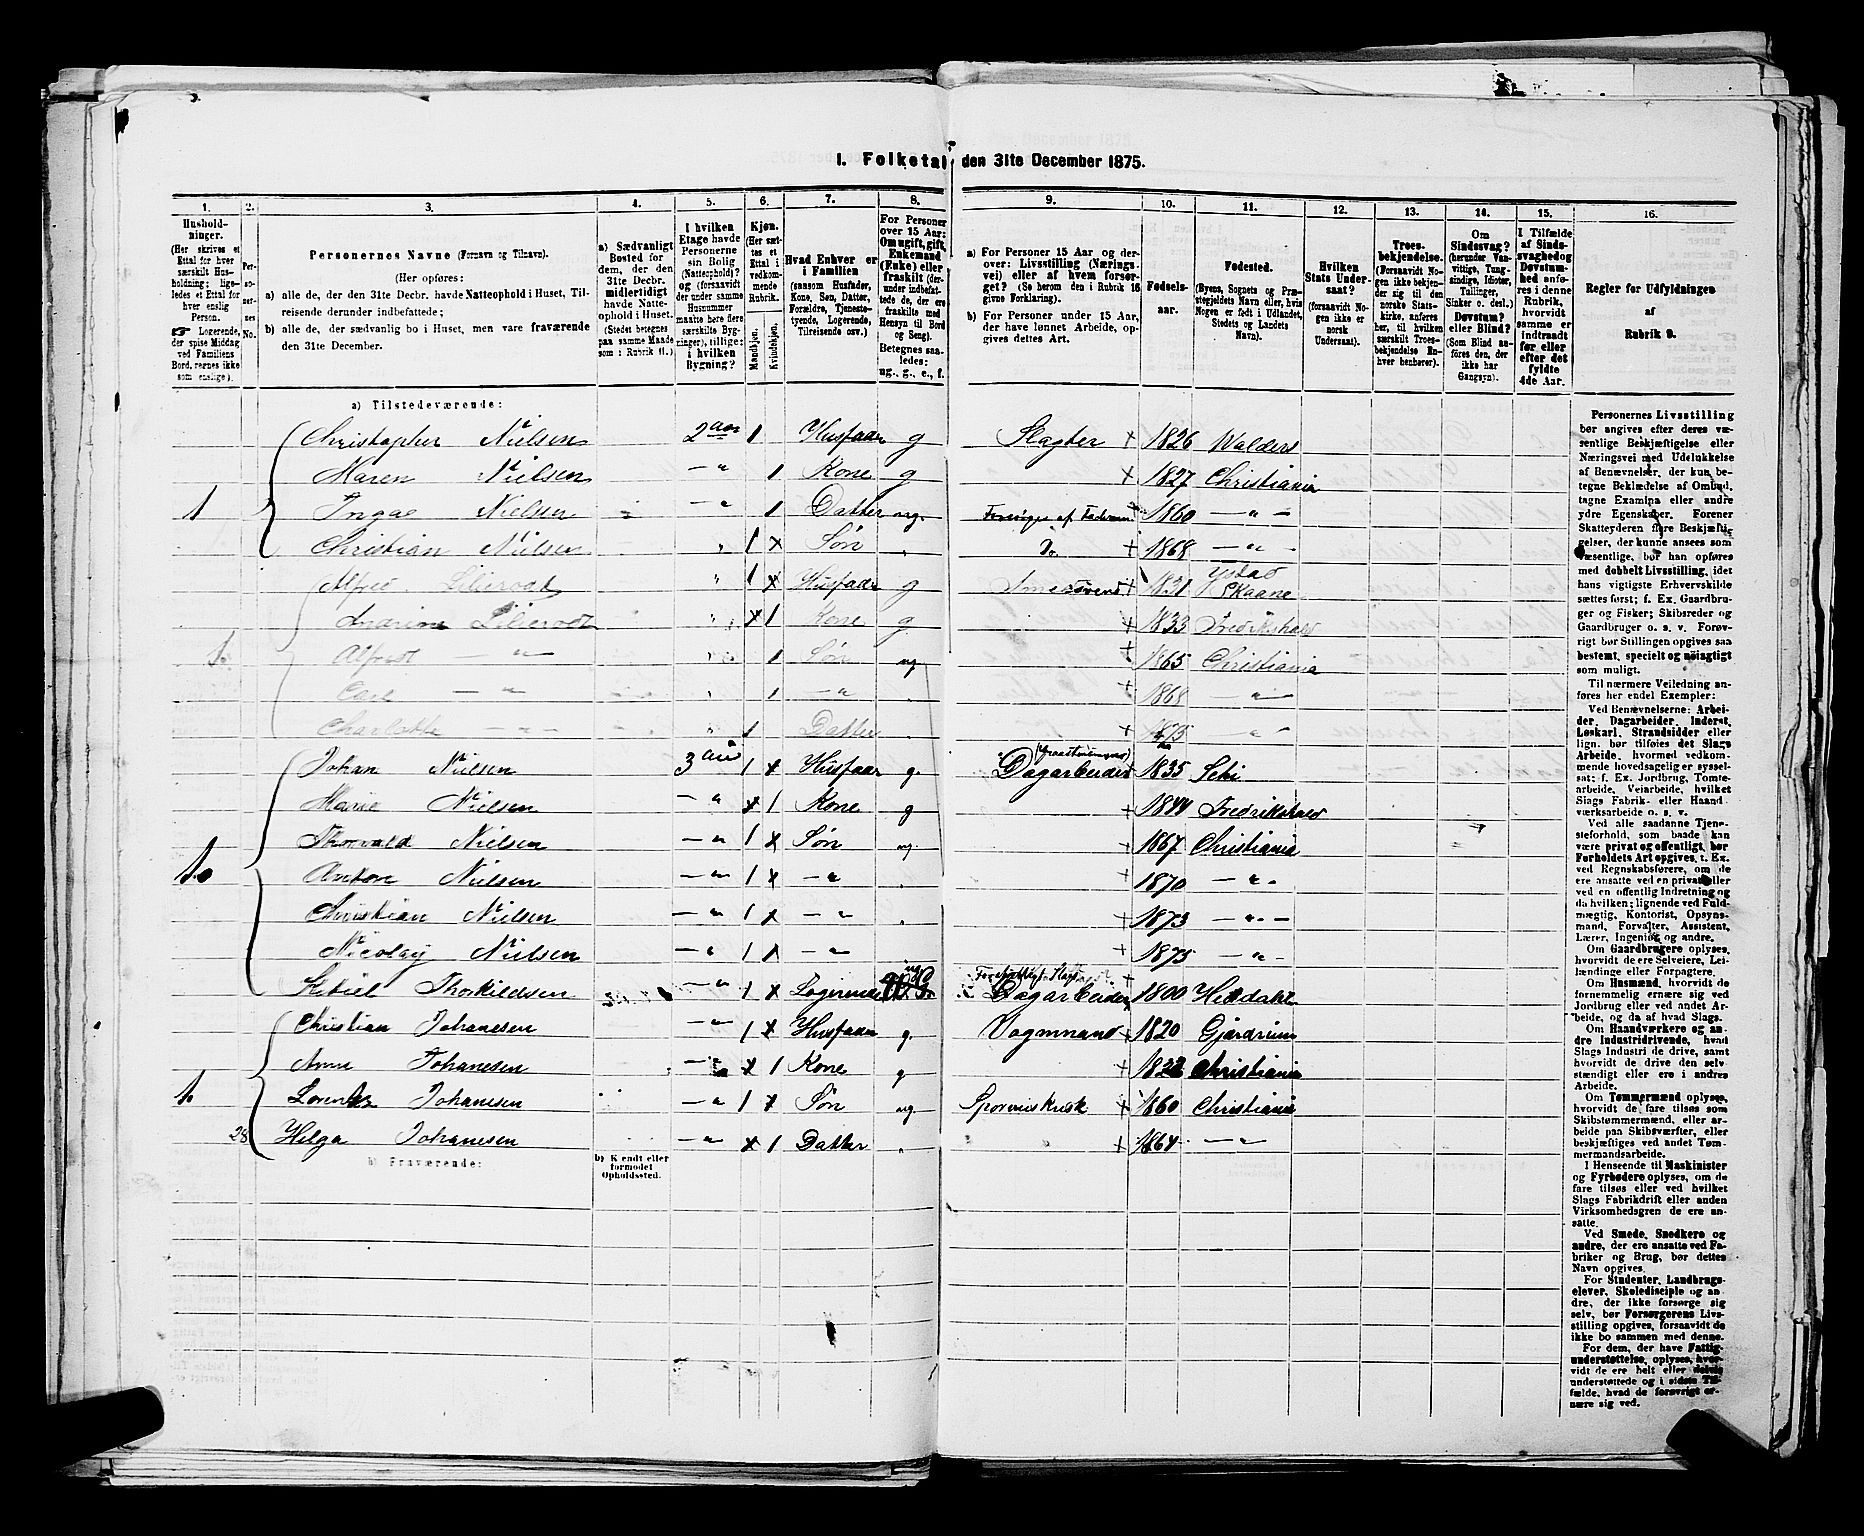 I. Folketal den 31te December 1875.
1. 2. 3. 4. 5. 6. 7. 8. 9. 10. 11. 12. 13. 14. 15. 16.
Husholdninger.
(Her skrives et Ettal for hver særskilt Husholdning; ligeledes et Ettal for hver enslig Person.
☞ Logerende, der spise Middag ved Familiens Bord, regnes ikke som enslige).
Personernes No.
Personernes Navne (Fornavn og Tilnavn).
(Her opføres:
a) alle de, der den 31te Decbr. havde Natteophold i Huset, Tilreisende derunder indbefattede;
b) alle de, der sædvanlig bo i Huset, men vare fraværende den 31te December.
a) Sædvanligt Bosted for dem, der den 31te Decbr. midlertidigt havde Natteophold i Huset.
(Stedet betegnes paa samme Maade som i Rubrik 11.)
I hvilken Etage havde Personerne sin Bolig (Natteophold)? og (forsaavidt der under samme Husnummer maatte høre flere særskilte Bygninger), tillige: i hvilken Bygning?
Kjøn.
(Her sættes et Ettal i vedkommende Rubrik.
Mandkjøn. Kvindekjøn.
Hvad Enhver er i Familien
(saasom Husfader, Kone, Søn, Datter, Forældre, Tjenestetyende, Logerende, Tilreisende osv.)
For Personer over 15 Aar: Om ugift, gift, Enkemand (Enke) eller fraskilt (derunder indbefattede de, der ere fraskilte med Hensyn til Bord og Seng).
Betegnes saaledes: ug., g., e., f.
a) For Personer 15 Aar og derover: Livsstilling (Næringsvei) eller af hvem forsørget? (Se herom den i Rubrik 16 givne Forklaring).
b) For Personer under 15 Aar, der have lønnet Arbeide, opgives dettes Art.
Fødselsaar.
Fødested.
(Byens, Sognets og Præstegjeldets Navn eller, hvis Nogen er født i Udlandet, Stedets og Landets Navn).
Hvilken Stats Undersaat?
(forsaavidt Nogen ikke er norsk Undersaat).
Troesbekjendelse.
(Forsaavidt Nogen ikke bekjender sig til den norske Statskirke, anføres her, til hvilken særskilt Troesbekjendelse Enhver henhører).
Om Sindssvag? (herunder Vanvittige, Tungsindige, Idioter, Tullinger, Sinker o. desl.) Døvstum? eller Blind?
(Som Blind anføres den, der ikke har Gangsyn).
I Tilfælde af Sindssvaghed og Døvstumhed anføres i denne Rubrik, hvorvidt samme er indtraadt før eller efter det fyldte 4de Aar.
Regler for Udfyldningen af Rubrik 9.
a) Tilstedeværende:
Christopher Nielsen 2 1 Husfader g Slagter + 1826 Walders
Maren Nielsen — " 1 Kone g + 1827 Christiania
1 Inga Nielsen — " 1 Datter ug. Forsørges af Faderen 1860 — " —
Christian Nielsen " 1 x Søn " Do + 1868 — " —
1 x Husfader g + 1831 Ystad Skaane
x 1 Kone g + 1833 Fredrikshald
1. — " — 1 Søn ug + 1865 Christiania
Carl — " — 1 — " + 1868 — " —
Charlotte — " — 1 Datter + 1875 "
Johan Nielsen 3 1 x Husfader g. Dagarbeider 1835
Marie Nielsen — " x 1 Kone g + 1844 Fredrikshald
Thorvald Nielsen — " 1 x Søn ug + 1867 Christiania
1. Anton Nielsen — " 1 x — " + 1870 — " -
Christian Nielsen — " 1 x — " + 1873 — " —
Nicolay Nielsen — " 1 — " + 1875 — " -
Thorkildsen — " 1 x Logerende ug Dagarbeider 1800
Christian Johanesen — " 1 x Husfader g. Vognmand + 1820 Gjerdrum
Anne Johanesen — " x 1 Kone g + 1822 Christiania
1. Lorents Johanesen — " 1 x Søn ug 1860 Christiania
28 Helga Johanesen — " x 1 Datter + 1864 — " —
b) Fraværende:
b) Kjendt eller formodet Opholdssted.
Personernes Livsstilling bør angives efter deres væsentlige Beskjæftigelse eller Næringsvei med Udelukkelse af Benævnelser, der kun betegne Beklædelse af Ombud, tagne Examina eller andre ydre Egenskaber. Forener Skatteyderen flere Beskjæftigelser, der kunne ansees som væsentlige, bør han opføres med dobbelt Livsstilling, idet hans vigtigste Erhvervskilde sættes først; f. Ex. Gaardbruger og Fisker; Skibsreder og Gaardbruger o. s. v. Forøvrigt bør Stillingen opgives saa bestemt, specielt og nøiagtigt som muligt.
Til nærmere Veiledning anføres her endel Exempler:
Ved Benævnelserne: Arbeider, Dagarbeider, Inderst, Løskarl, Strandsidder eller lign. bør tilføies det Slags Arbeide, hvormed vedkommende hovedsagelig er sysselsat; f. Ex. Jordbrug, Tomtearbeide, Veiarbeide, hvilket Slags Fabrik- eller Haandværksarbeide o. s. v.
Ved alle saadanne Tjenesteforhold, som baade kan være privat og offentligt, bør Forholdets Art opgives, t. Ex. ved Regnskabsførere, om de ere ansatte ved en privat eller ved en offentlig Indretning og da hvilken; lignende ved Fuldmægtig, Kontorist, Opsynsmand, Forvalter, Assistent, Lærer, Ingeniør og andre.
Om Gaardbrugere oplyses, hvorvidt de ere Selveiere, Leilændinge eller Forpagtere.
Om Husmænd, hvorvidt de fornemmelig ernære sig ved Jordbrug eller ved andet Arbeide, og da af hvad Slags.
Om Haandværkere og andre Industridrivende, hvad Slags Industri de drive, samt hvorvidt de drive den selvstændigt eller ere i andres Arbeide.
Om Tømmermænd oplyses, hvorvidt de fare tilsøs som Skibstømmermænd, eller arbeide paa Skibsværfter, eller beskjæftiges ved andet Tømmermandsarbeide.
I Henseende til Maskinister og Fyrbødere oplyses, om de fare tilsøs eller ved hvilket Slags Fabrikdrift eller anden Virksomhedsgren de ere ansatte.
Ved Smede, Snedkere og andre, der ere ansatte ved Fabriker og Brug, bør dettes Navn opgives.
For Studenter, Landbrugselever, Skoledisciple og andre, der ikke forsørge sig selv, bør Forsørgerens Livsstilling opgives, forsaavidt de ikke bo sammen med denne.
For dem, der have Fattigunderstøttelse, oplyses, hvorvidt de ere helt eller delvis understøttede og i sidste Tilfælde, hvad de forøvrigt ernære sig ved.